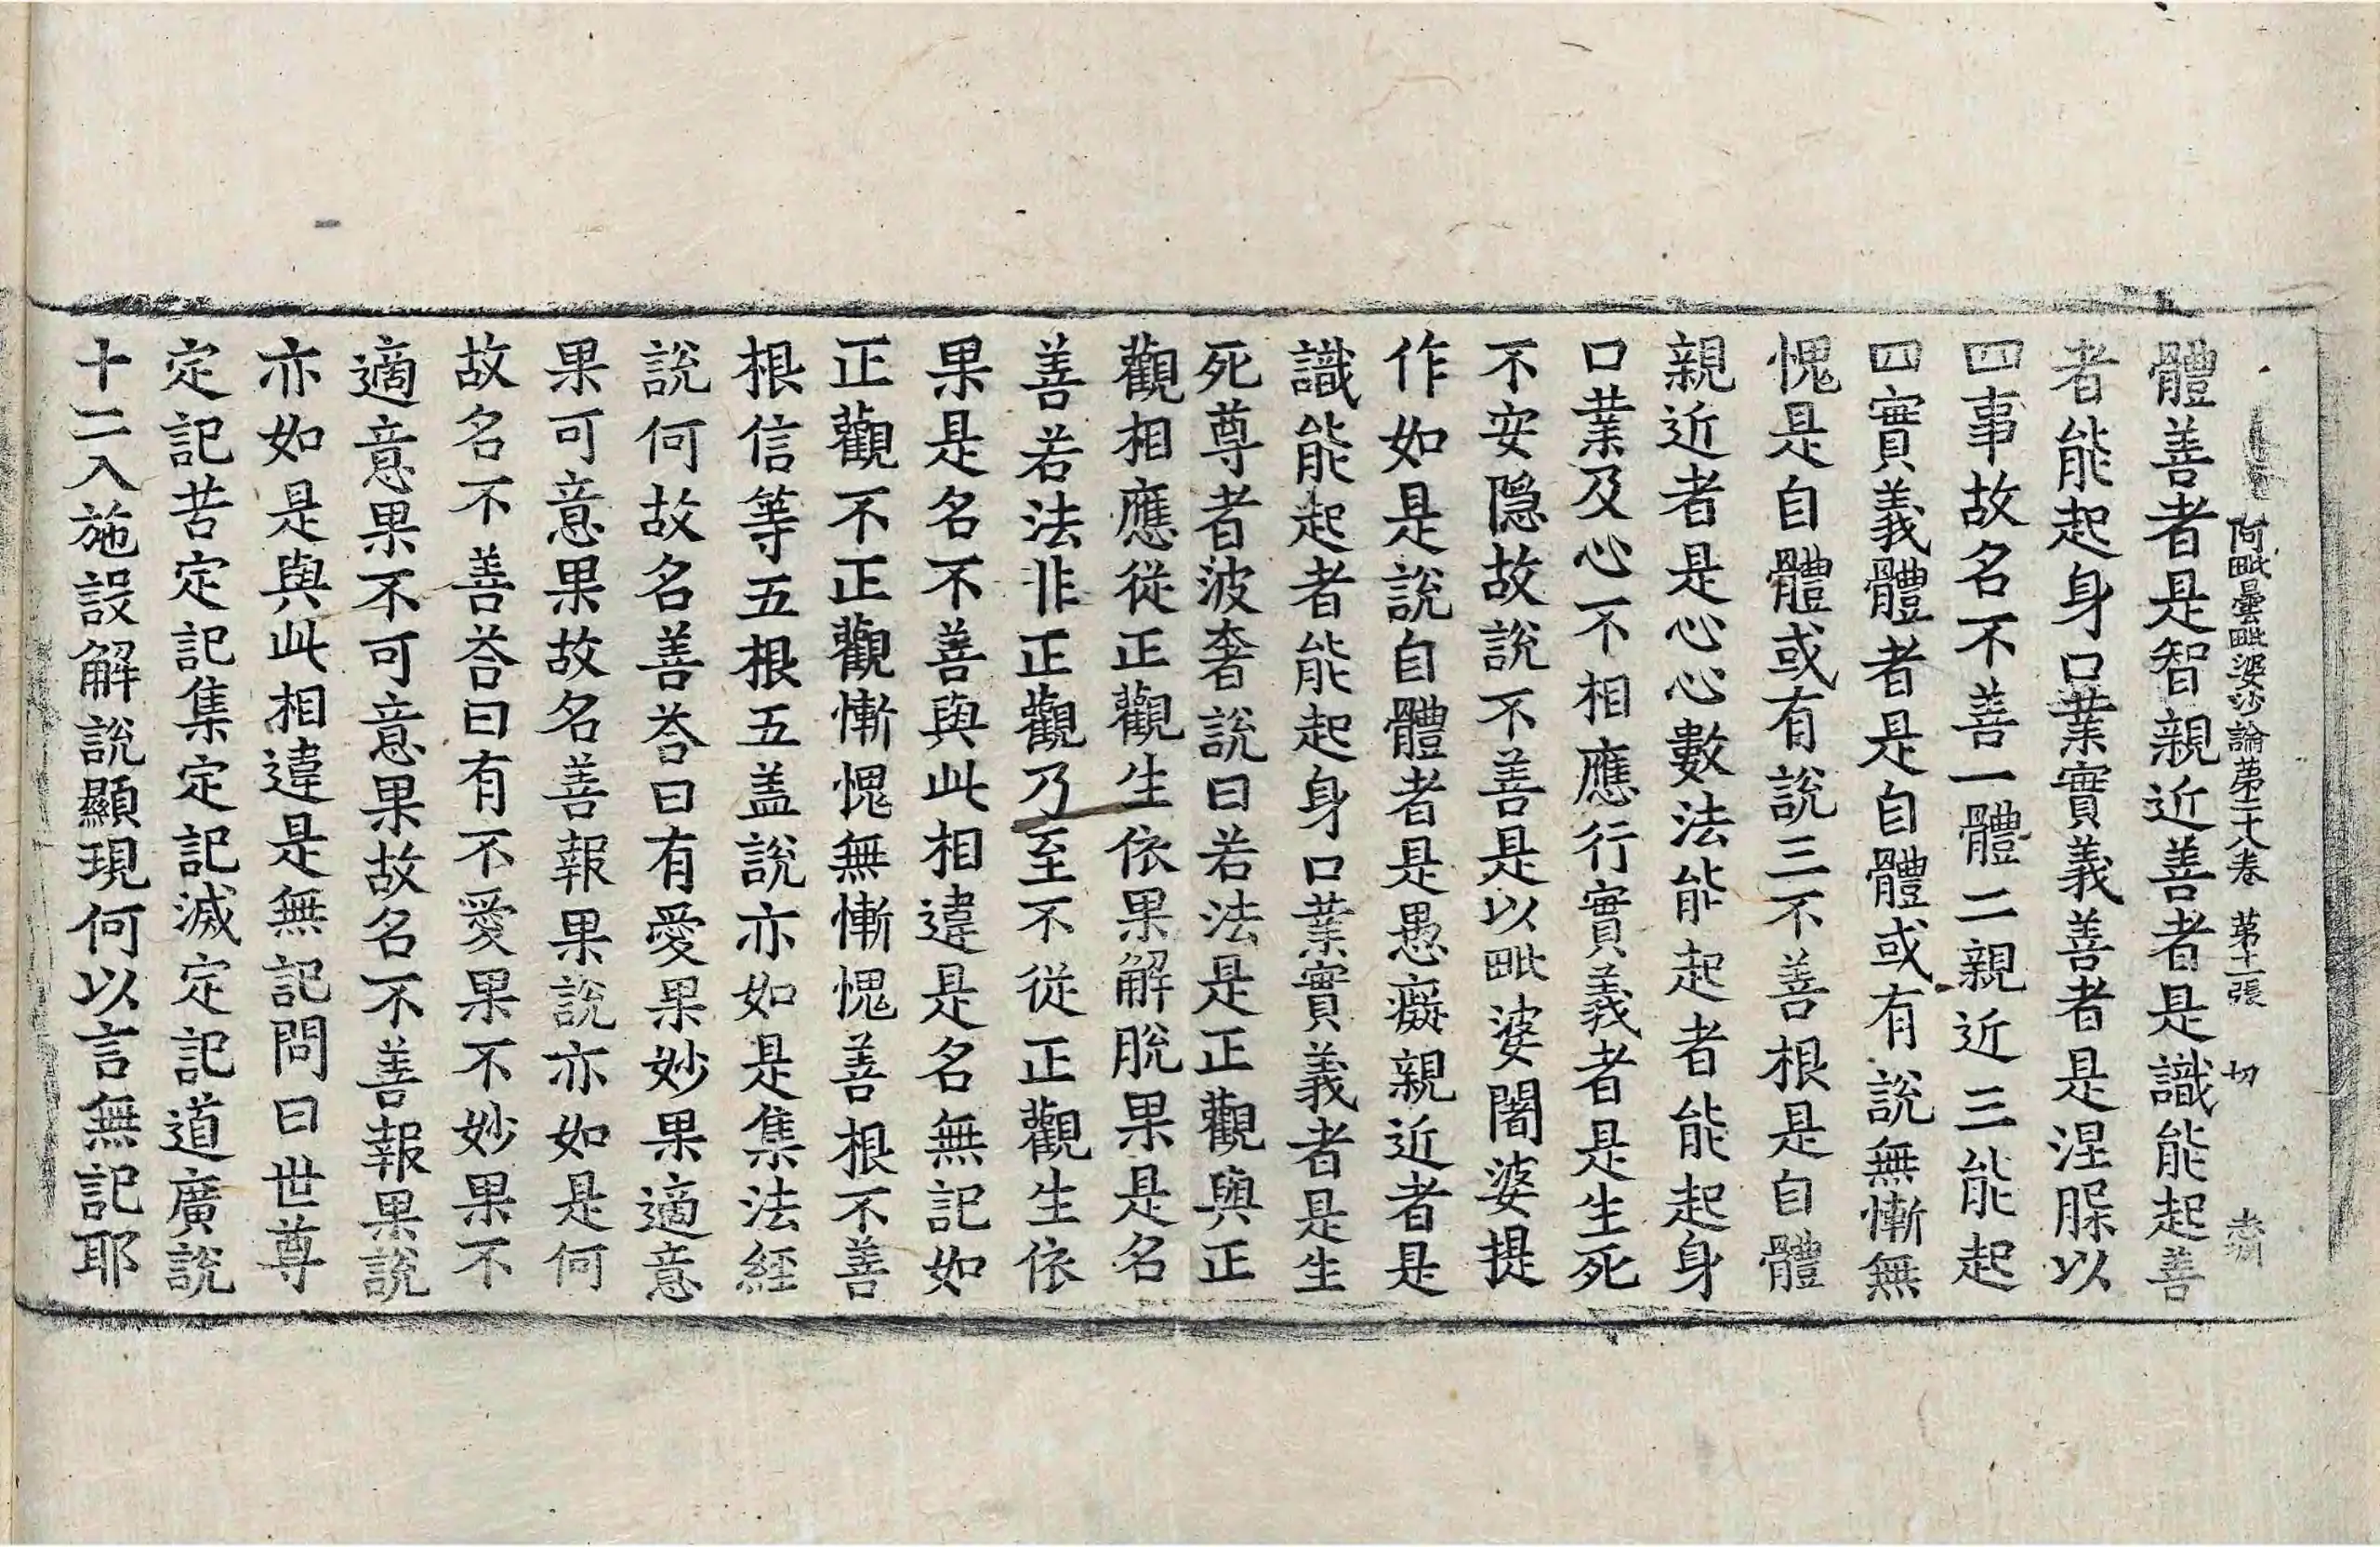 阿毗曇毗婆沙論苐二十八卷 苐十一張 切
體善者是智親近善者是識能起善
者能起身口業實義善者是涅脲以
四事故名不善一體二親近三能起
四實義體者是自體或有說無慚無
愧是自體或有說三不善根是自體
親近者是心心數法能起者能起身
口業及心不相應行實義者是生死
不安隠故說不善是以毗婆闍婆提
作如是說自體者是愚癡親近者是
識能起者能起身口業實義者是生
死尊者波奢說曰若法是正觀與正
觀相應從正觀生依果解脫果是名
善若法非正觀乃至不從正觀生依
果是名不善與此相違是名無記如
正觀不正觀慚愧無慚愧善根不善
根信等五根五盖說亦如是集法經
說何故名善荅曰有愛果妙果適意
果可意果故名善報果說亦如是何
故名不善荅曰有不愛果不妙果不
適意果不可意果故名不善報果說
亦如是與此相違是無記問曰世尊
定記苦定記集定記滅定記道廣說
十二入施設解說顯現何以言無記耶